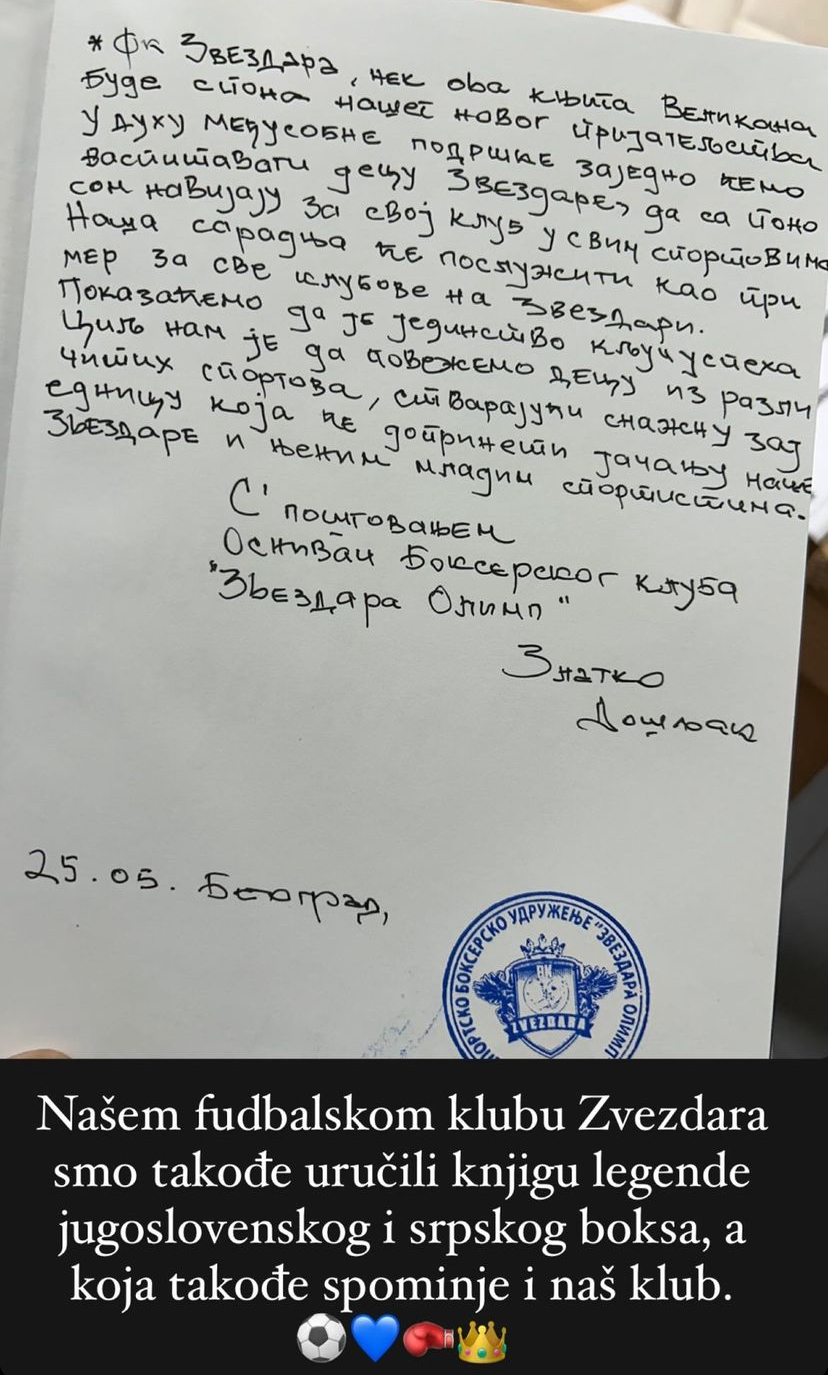 * Фк Звездара, нек ова књига Великана
буде спона нашег новог пријатељства
У духу међусобне подршке заједно ћемо
васпитавати децу Звездаре, да са поно
сом навијају за свој клуб у свим спортовима
Наша сарадња ће послужити као при
мер за све клубове на Звездари.
Показаћемо да је јединство кључ успеха
Циљ нам је да повежемо децу из разли
читих спортова, стварајући снажну зај
едницу која ће допринети јачању наше
Звездаре и њеним младим спортистима.
С' поштовањем
Оснивач Боксерског клуба
"Звездара Олимп"
Златко
Дошљак
25.05. Београд,
ПОРТСКО БОКСЕРСКО УДРУЖЕЊЕ "ЗВЕЗДАРА ОЛИМП
ZVEZDARA
Našem fudbalskom klubu Zvezdara
smo takođe uručili knjigu legende
jugoslovenskog i srpskog boksa, a
koja takođe spominje i naš klub.
⚽💙🥊👑